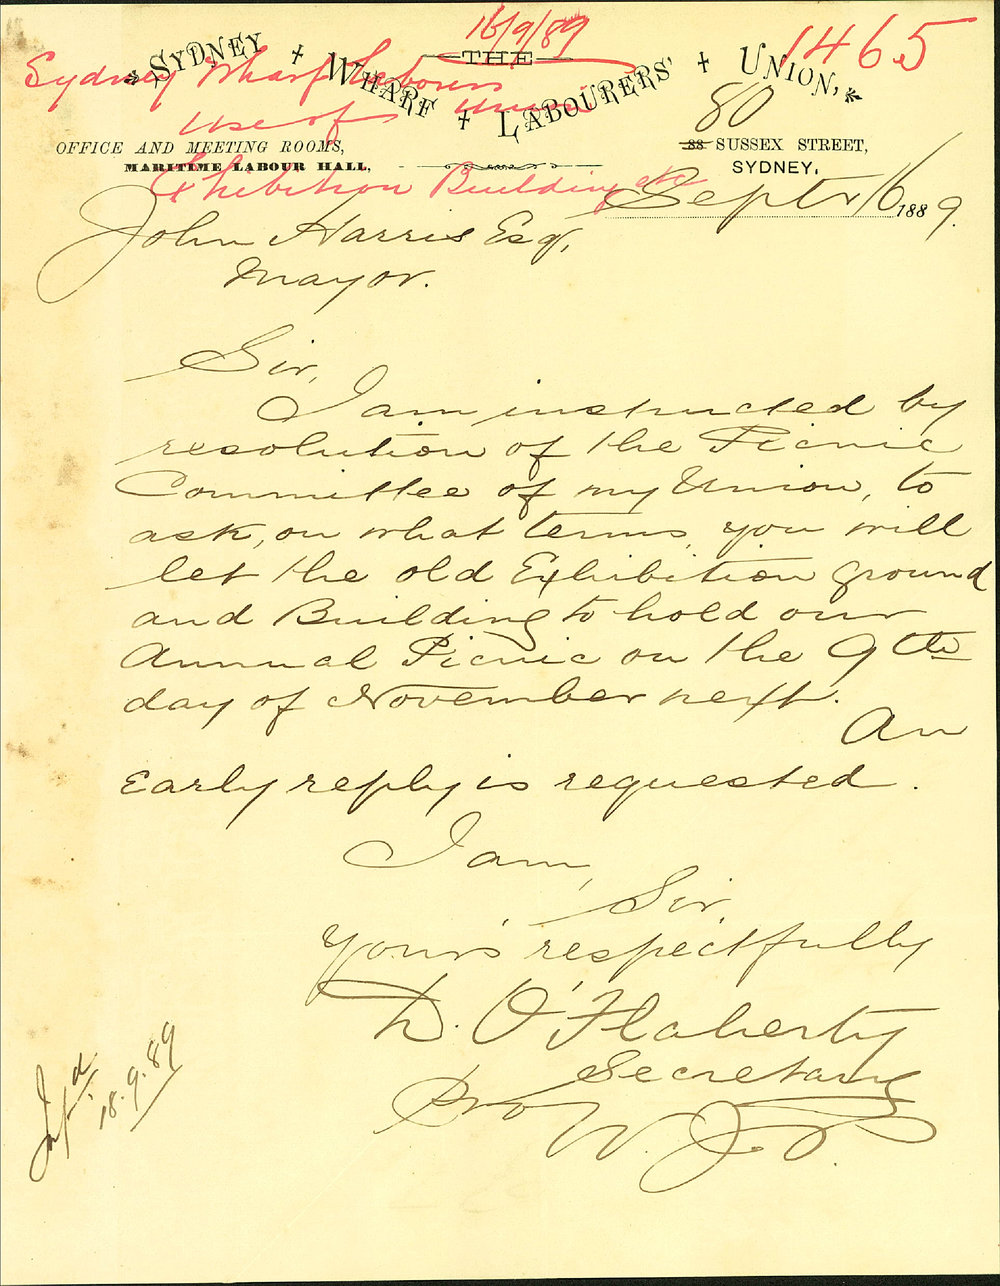 16/9/89
1465
THE
SYDNEY WHARF LABOURERS' UNION,
Sydney Wharf Labourers
Union
Use of
Exhibition Building etc
80
OFFICE AND MEETING ROOMS,
MARITIME LABOUR HALL,
88 SUSSEX STREET,
SYDNEY,
Septr 16 1889.
John Harris Esqr,
Mayor.
Sir,
I am instructed by
resolution of the Picnic
Committee of my Union, to
ask, on what terms, you will
let the old Exhibition ground
and Building to hold our
Annual Picnic on the 9th
day of November next.
An
Early reply is requested.
I am,
Sir,
Yours respectfully
D. O'Flaherty
Secretary
Pro W. J. P.
Infd
18.9.89